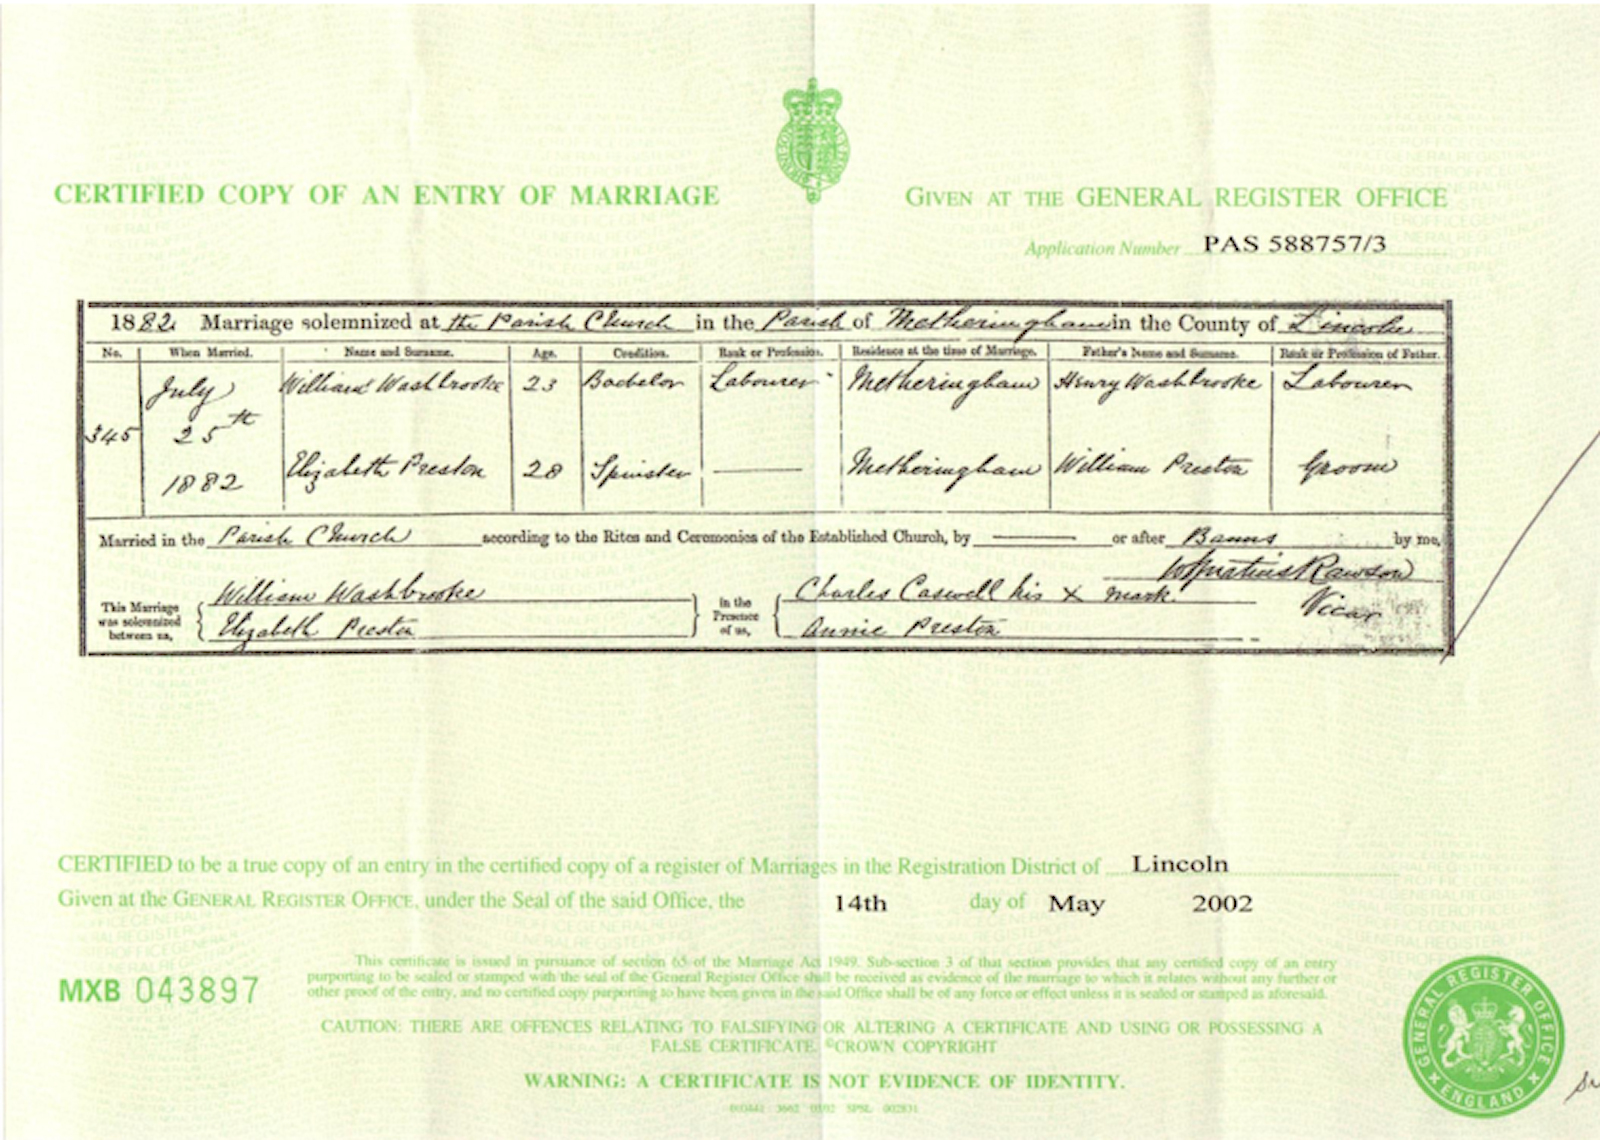 CERTIFIED COPY OF AN ENTRY OF MARRIAGE
GIVEN AT THE GENERAL REGISTER OFFICE
Application Number PAS 588757/3
1882 Marriage solemnized at the Parish Church in the Parish of Metheringham in the County of Lincoln
No. When Married. Name and Surname. Age. Condition. Rank or Profession. Residence at the time of Marriage. Father's Name and Surname. Rank or Profession of Father.
July William Washbrooke 23 Bachelor Labourer Metheringham Henry Washbrooke Labourer
345 25th
1882 Elizabeth Preston 28 Spinster Metheringham William Preston Groom
Married in the Parish Church according to the Rites and Ceremonies of the Established Church, by or after Banns by me,
Rawson
This Marriage was solemnized between us, William Washbrooke in the Presence of us, Charles Caswell his X mark. Vicar
Elizabeth Preston Annie Preston
CERTIFIED to be a true copy of an entry in the certified copy of a register of Marriages in the Registration District of Lincoln
Given at the GENERAL REGISTER OFFICE, under the Seal of the said Office, the 14th day of May 2002
MXB 043897
This certificate is issued in pursuance of section 65 of the Marriage Act 1949. Sub-section 3 of that section provides that any certified copy of an entry
purporting to be sealed or stamped with the seal of the General Register Office shall be received as evidence of the marriage to which it relates without any further or
other proof of the entry, and no certified copy purporting to have been given in the said Office shall be of any force or effect unless it is sealed or stamped as aforesaid.
CAUTION: THERE ARE OFFENCES RELATING TO FALSIFYING OR ALTERING A CERTIFICATE AND USING OR POSSESSING A
FALSE CERTIFICATE. ©CROWN COPYRIGHT
WARNING: A CERTIFICATE IS NOT EVIDENCE OF IDENTITY.
GENERAL REGISTER OFFICE
ENGLAND